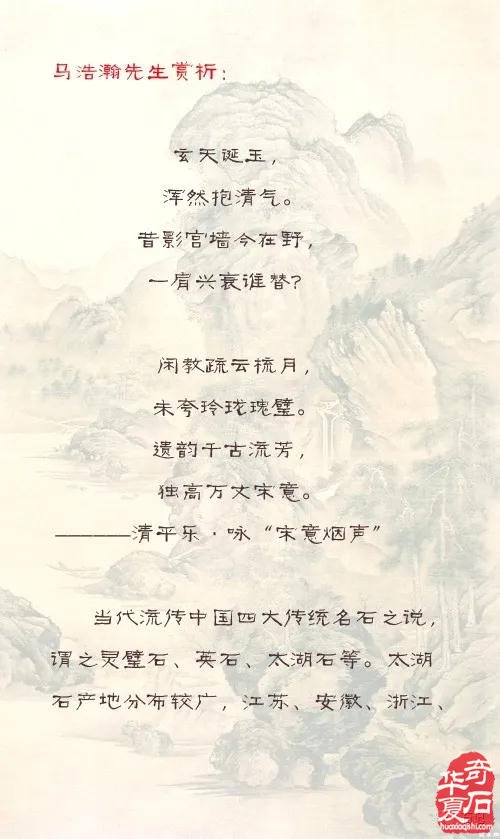 马浩瀚先生赏析：
玄天诞玉，
浑然抱清气。
昔影宫墙今在野，
一肩兴衰谁替？
闲教疏云梳月，
未夸玲珑瑰璧。
遗韵千古流芳，
独高万丈宋意。
———————清平乐·咏“宋意烟声”
当代流传中国四大传统名石之说，
谓之灵璧石、英石、太湖石等。太湖
石产地分布较广，江苏、安徽、浙江、
华夏奇石
huaxiaqishi.com